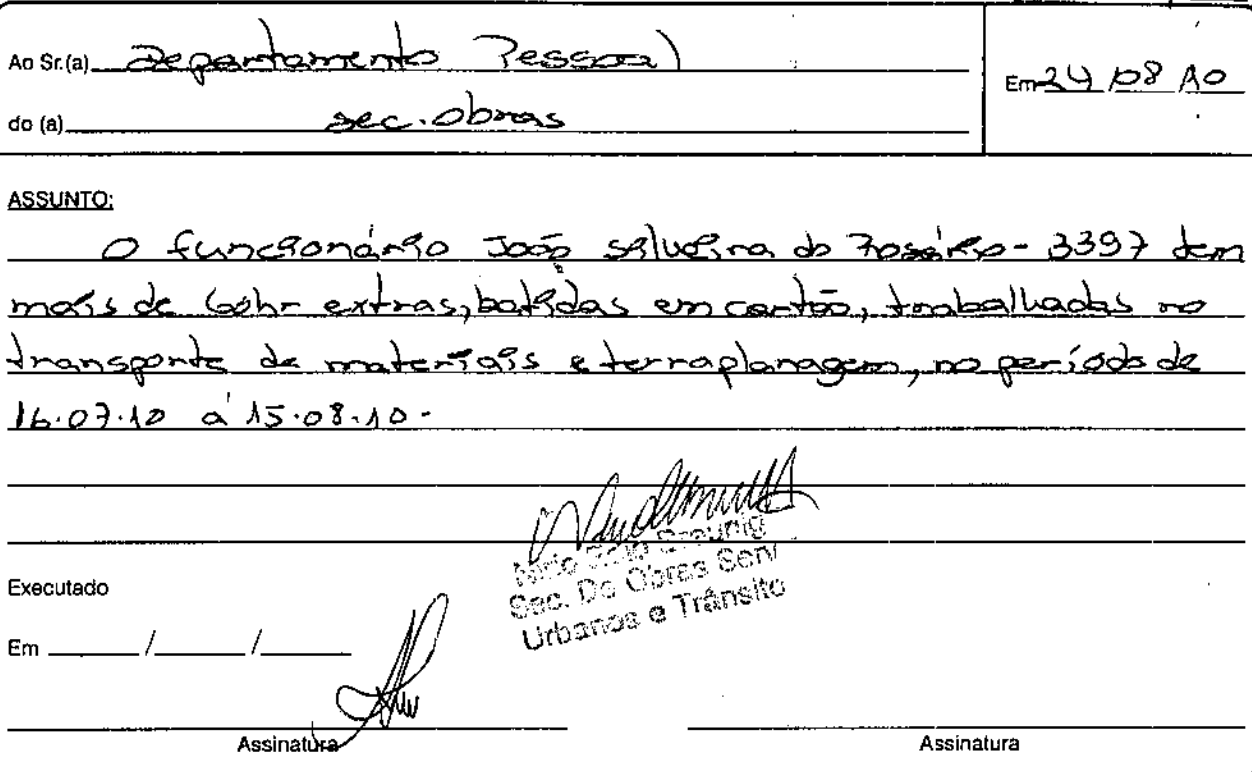 Ao Sr.(a) Departamento Pessoal
Em 24/08/10
do (a) sec. obras
ASSUNTO:
O funcionário João Silveira do Rosário - 3397 tem
mais de 60hr extras, batidas em cartão, trabalhadas no
transporte de materiais e terraplanagem, no período de
16.07.10 a 15.08.10.
Sec. De Obras Serv
Urbanos e Trânsito
Executado
Em ___/___/___
Assinatura
Assinatura